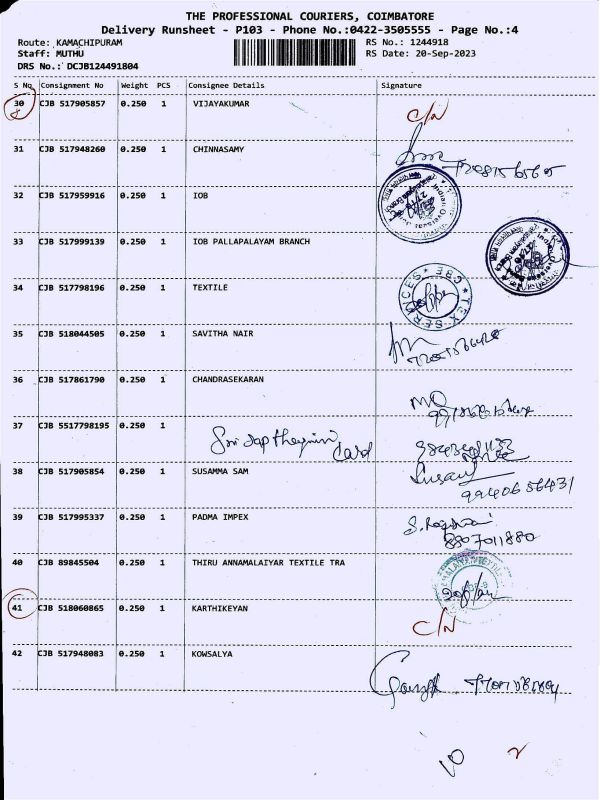 THE PROFESSIONAL COURIERS, COIMBATORE
Delivery Runsheet - P103 - Phone No.:0422-3505555 - Page No.:4
Route: KAMACHIPURAM RS No.: 1244918
Staff: MUTHU RS Date: 20-Sep-2023
DRS No.: DCJB124491804
S No Consignment No Weight PCS Consignee Details Signature
30 CJB 517905857 0.250 1 VIJAYAKUMAR C/N
31 CJB 517948260 0.250 1 CHINNASAMY
32 CJB 517959916 0.250 1 IOB
33 CJB 517999139 0.250 1 IOB PALLAPALAYAM BRANCH
34 CJB 517798196 0.250 1 TEXTILE TEX-SERVICES CBE
35 CJB 518044505 0.250 1 SAVITHA NAIR
36 CJB 517861790 0.250 1 CHANDRASEKARAN
37 CJB 5517798195 0.250 1 Card
38 CJB 517905854 0.250 1 SUSAMMA SAM 9940656431
39 CJB 517995337 0.250 1 PADMA IMPEX 8807011880
40 CJB 89845504 0.250 1 THIRU ANNAMALAIYAR TEXTILE TRA
41 CJB 518060865 0.250 1 KARTHIKEYAN C/N
42 CJB 517948083 0.250 1 KOWSALYA
10 2